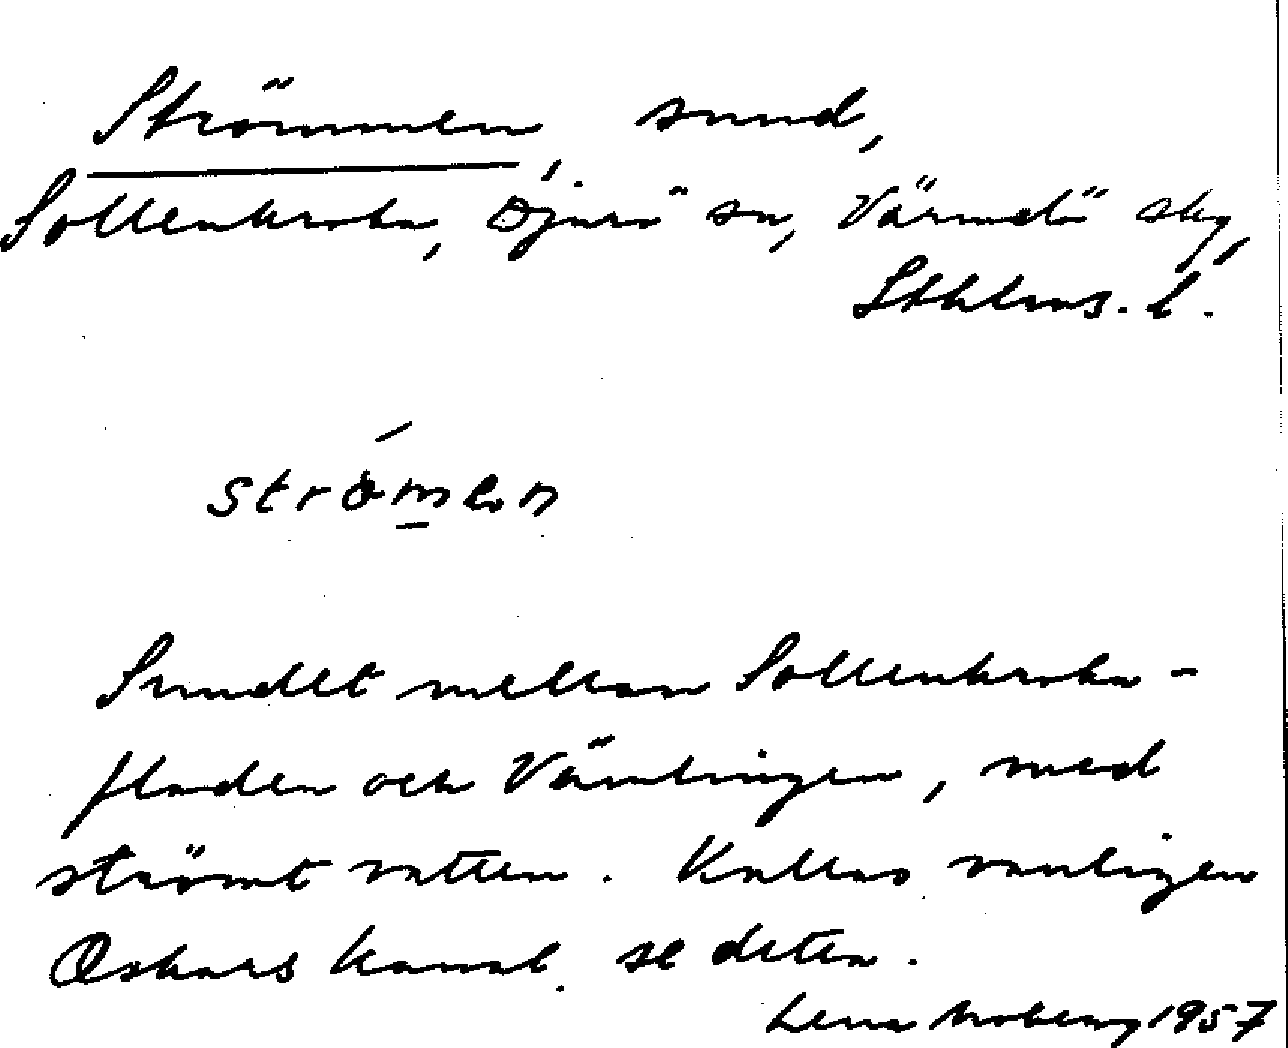 Strömmen, sund,
Sollenkroka, Djurö sn, Värmdö skg,
Sthlms. l.
strö́men
Sundet mellan Sollenkroka-
fladen och Vämlingen, med
strömt vatten. Kallas vanligen
Oskars kanal, se detta.
Lena Moberg 1957